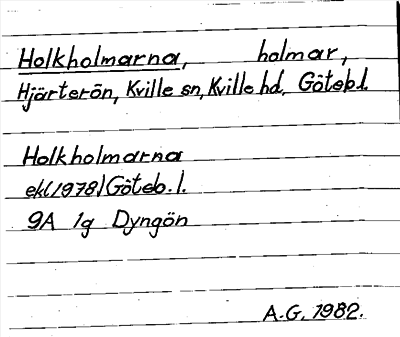 Holkholmarna, holmar,
Hjärterön, Kville sn, Kville hd, Göteb.l.
Holkholmarna
ekl(1978)Göteb.l.
9A 1g Dyngön
A.G. 1982.